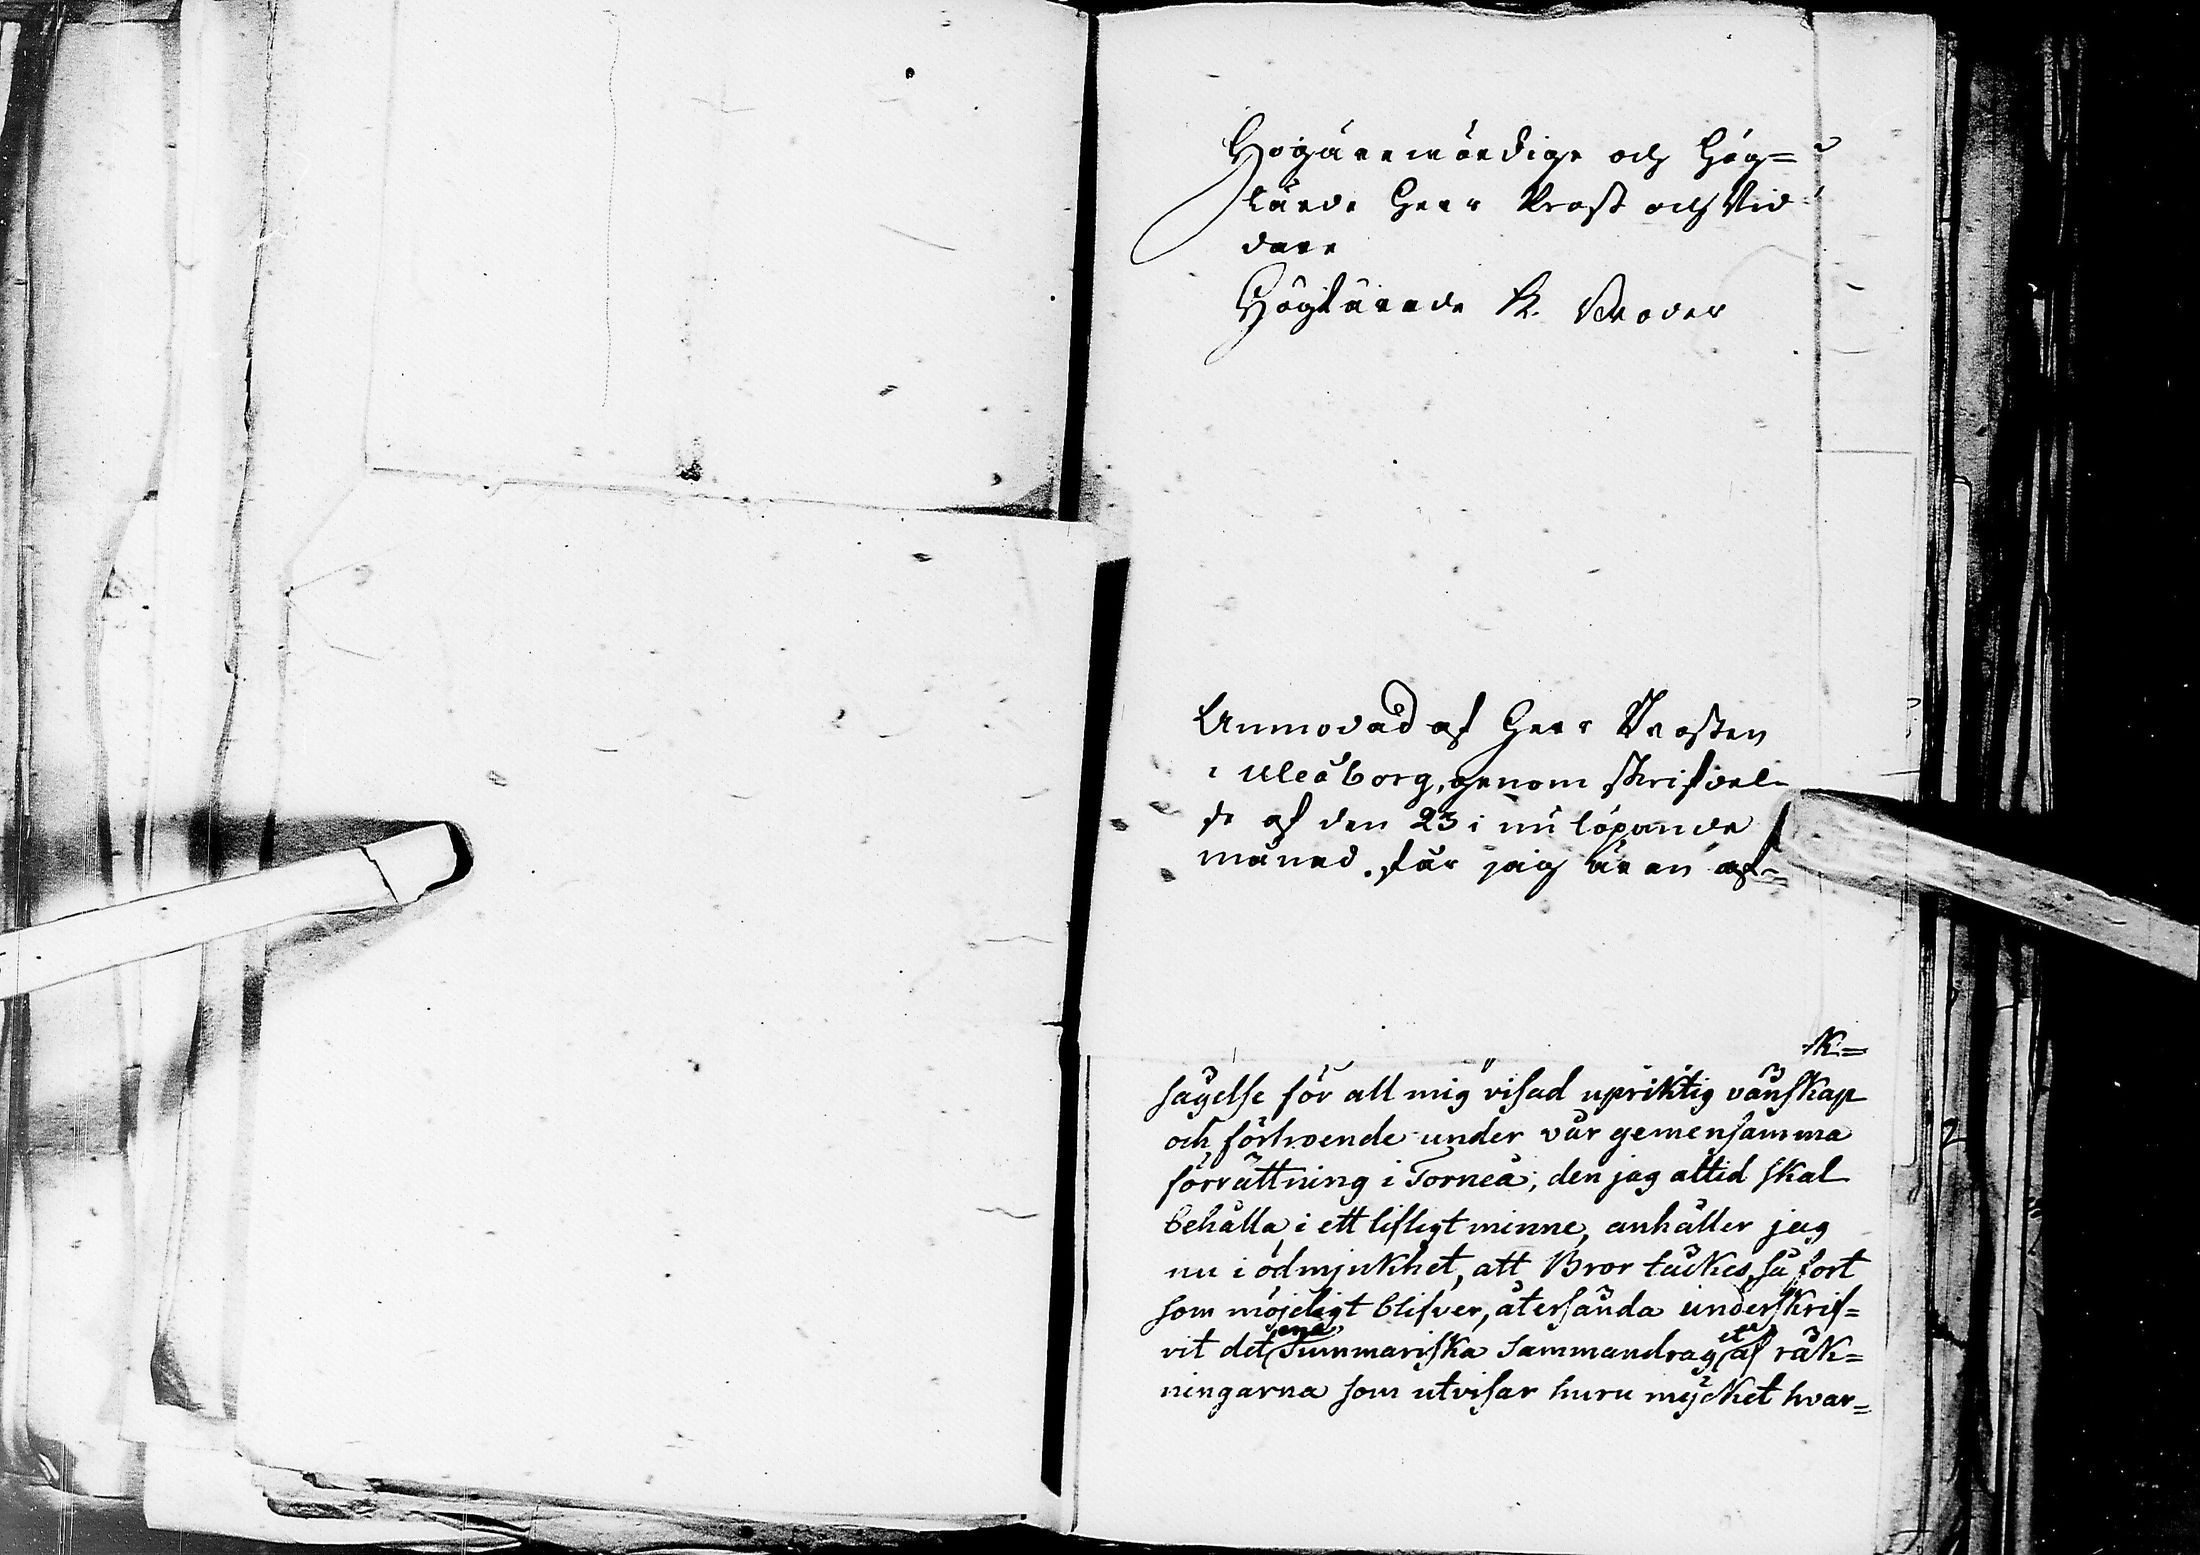 Högärewördige och Hög=
lärde Herr Prost och Rid
dare
Höglärade K. Broder
Anmodad af Herr Prosten
i Uleåborg, genom skrifvel-
se af den 23 i nu löpande
månad, får jag äran af=
k=
sägelse för all mig visad upriktig vänskap
och förtroende under vår gemensamma
förrättning i Torneå, den jag altid skal
behålla i ett lifligt minne, anhåller jag
nu i ödmjukhet, att Bror täckes, så fort
som möjeligt blifver, återsända underskrif=
vit det ena
summariska Sammandraget af räk=
ningarna som utvisar huru mycket hvar=